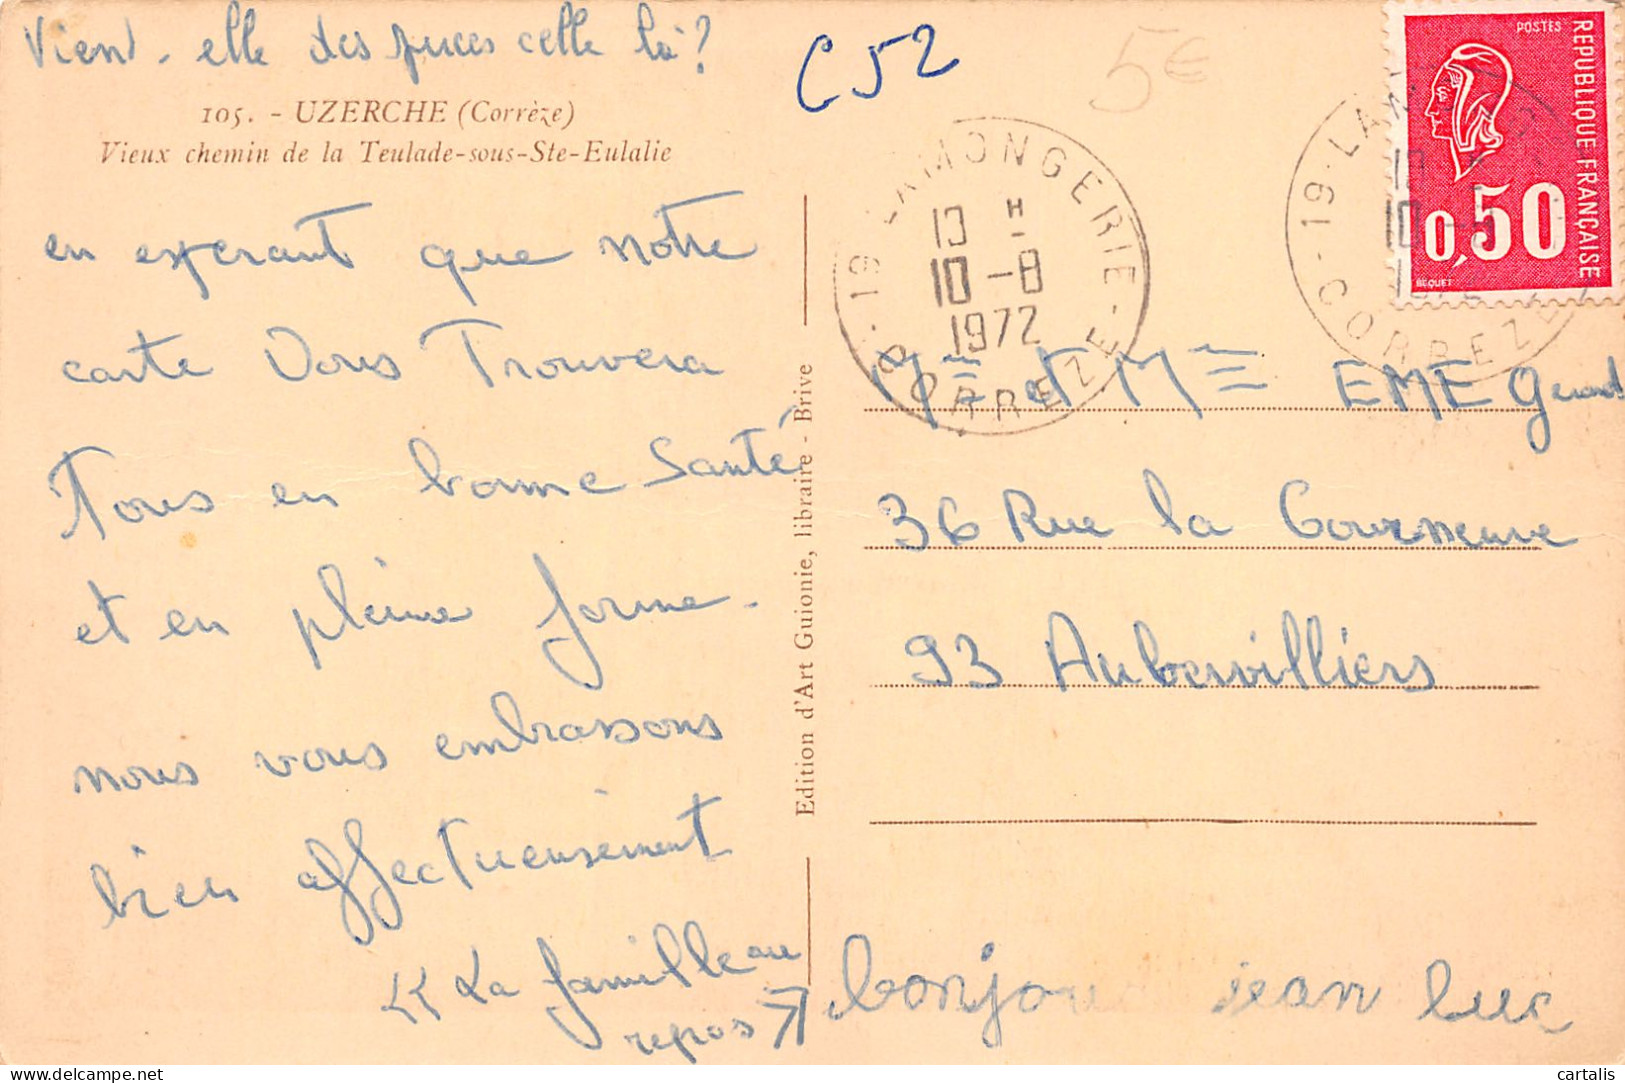 Vient-elle des puces celle là ?
C52
5€
105. - UZERCHE (Corrèze)
Vieux chemin de la Teulade-sous-Ste-Eulalie
en esperant que notre
carte Vous Trouvera
Tous en bonne Santé
et en pleine forme.
nous vous embrassons
bien affectueusement
« La famille au
repos »
Edition d'Art Guionie, libraire - Brive
19 LAMONGERIE
13 H
10-8
1972
CORREZE
POSTES
REPUBLIQUE FRANÇAISE
0,50
BEQUET
19 CORREZE
Mr et Mme EME Gerard
36 Rue la Courneuve
93 Aubervilliers
bonjou jean luc
cartalis